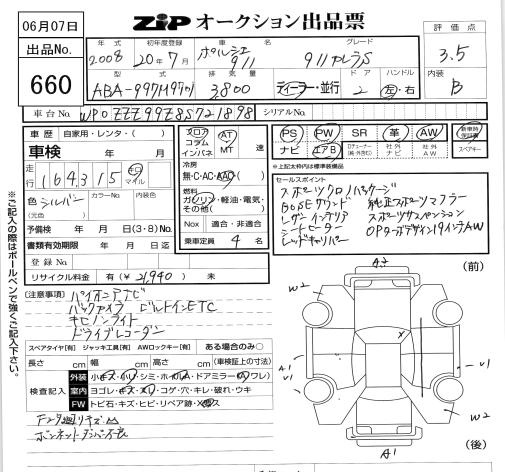 06月07日
ZIP オークション出品票
出品No. 660
年式 2008
初年度登録 20年7月
車名 ポルシェ 911
グレード 911カレラS
評価点 3.5
型式 ABA-997M9701
排気量 3,800
ディーラー・並行
ドア 2
ハンドル 左・右
内装 B
車台No. WP0ZZZ99Z8S721898
シリアルNo.
車歴 自家用・レンタ( )
車検 年 月
走行 164,315 キロ マイル
色 シルバー (元色)
カラーNo.
内装色
予備検 年 月 日(3・8)No.
書類有効期限 年 月 日迄
登録No.
リサイクル料金 有(¥ 21,940) 未
フロア コラム インパネ
AT MT 速
冷房 無・C・AC・AAC
燃料 ガソリン・軽油・電気・その他( )
Nox 適合・非適合
乗車定員 4 名
PS PW SR 革 AW
ナビ エアB 社外ナビ 社外AW
新車時保証書
スペアキー
※上記太枠内は標準装備品
セールスポイント
スポーツクロノパッケージ
BOSEサウンド 純正スポーツマフラー
レザーインテリア スポーツサスペンション
シートヒーター OPターボデザイン19インチAW
レッドキャリパー
注意事項
パイオニアナビ
バックカメラ ビルトインETC
キセノンライト
ドライブレコーダー
スペアタイヤ[有] ジャッキ工具[有] AWロックキー[有] ある場合のみ○
長さ cm 幅 cm 高さ cm (車検証上の寸法)
検査記入
外装 小キズ・小凹・シミ・ホイルA・ドアミラー(キズ・ワレ)
室内 ヨゴレ・キズ・スレ・コゲ・穴・キレ・破れ・ウキ
FW トビ石・キズ・ヒビ・リペア跡・Xガラス
ボンネットダンパー不良
※ご記入の際はボールペンで強くご記入下さい。
(前)
A2
W2
U1
A1
U1
X
W2
A1
(後)